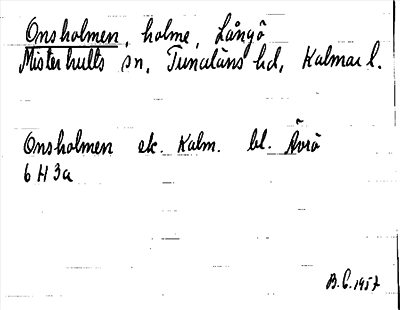 Onsholmen, holme, Långö
Misterhults sn, Tunaläns hd, Kalmar l.
Onsholmen ek. Kalm. bl. Ävrö
6 H 3a
B.C. 1957